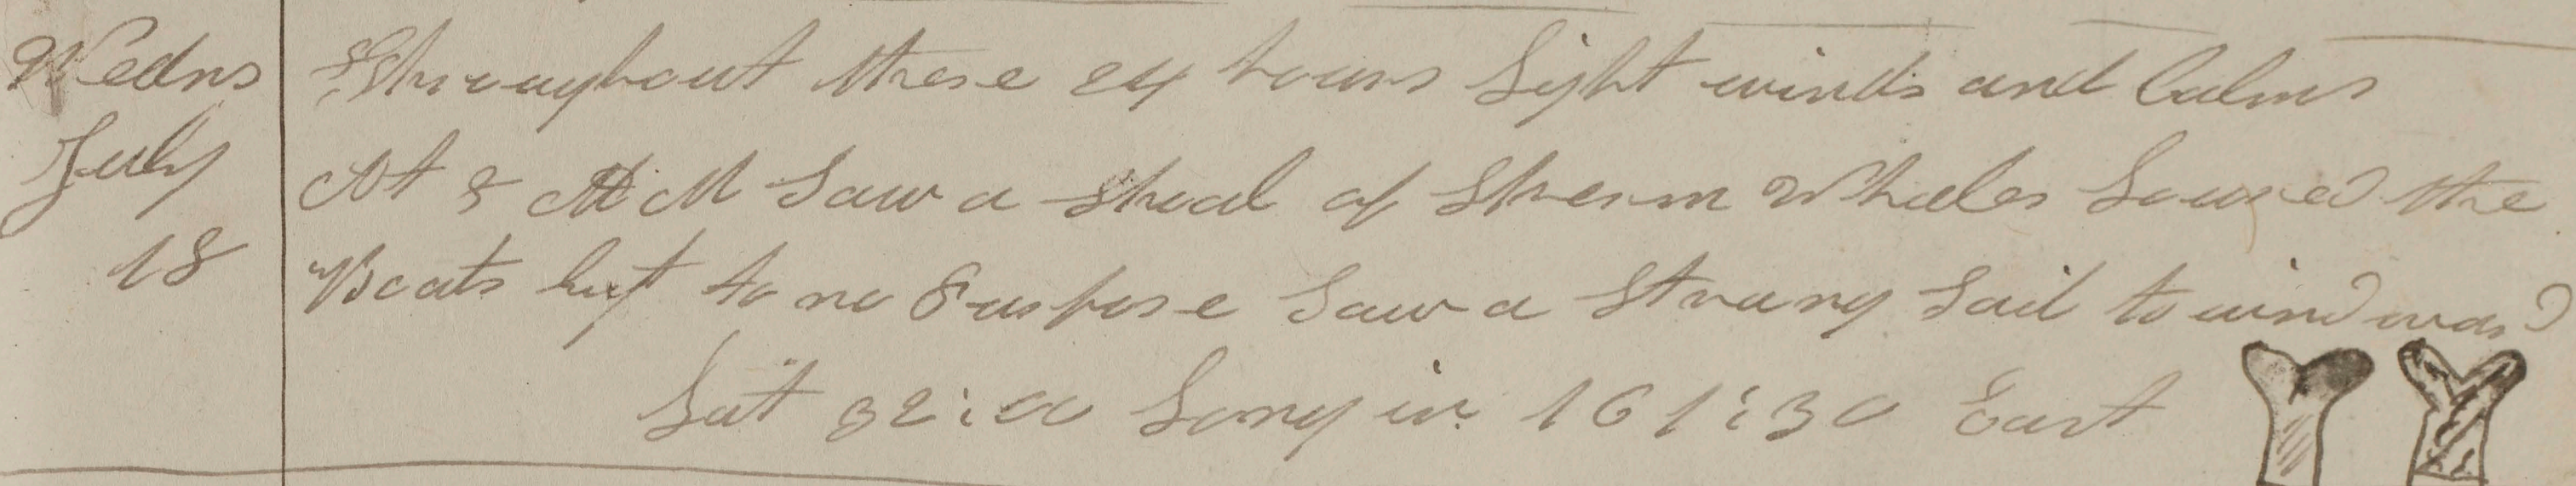 Wedns Throughout these 24 hours Light winds and Calms
July At 8 AM Saw a shoal of Sperm Whales Lowred the
18 Boats but to no Purpose Saw a Strang Sail to windward
Lat 32:00 Long in 161:30 East